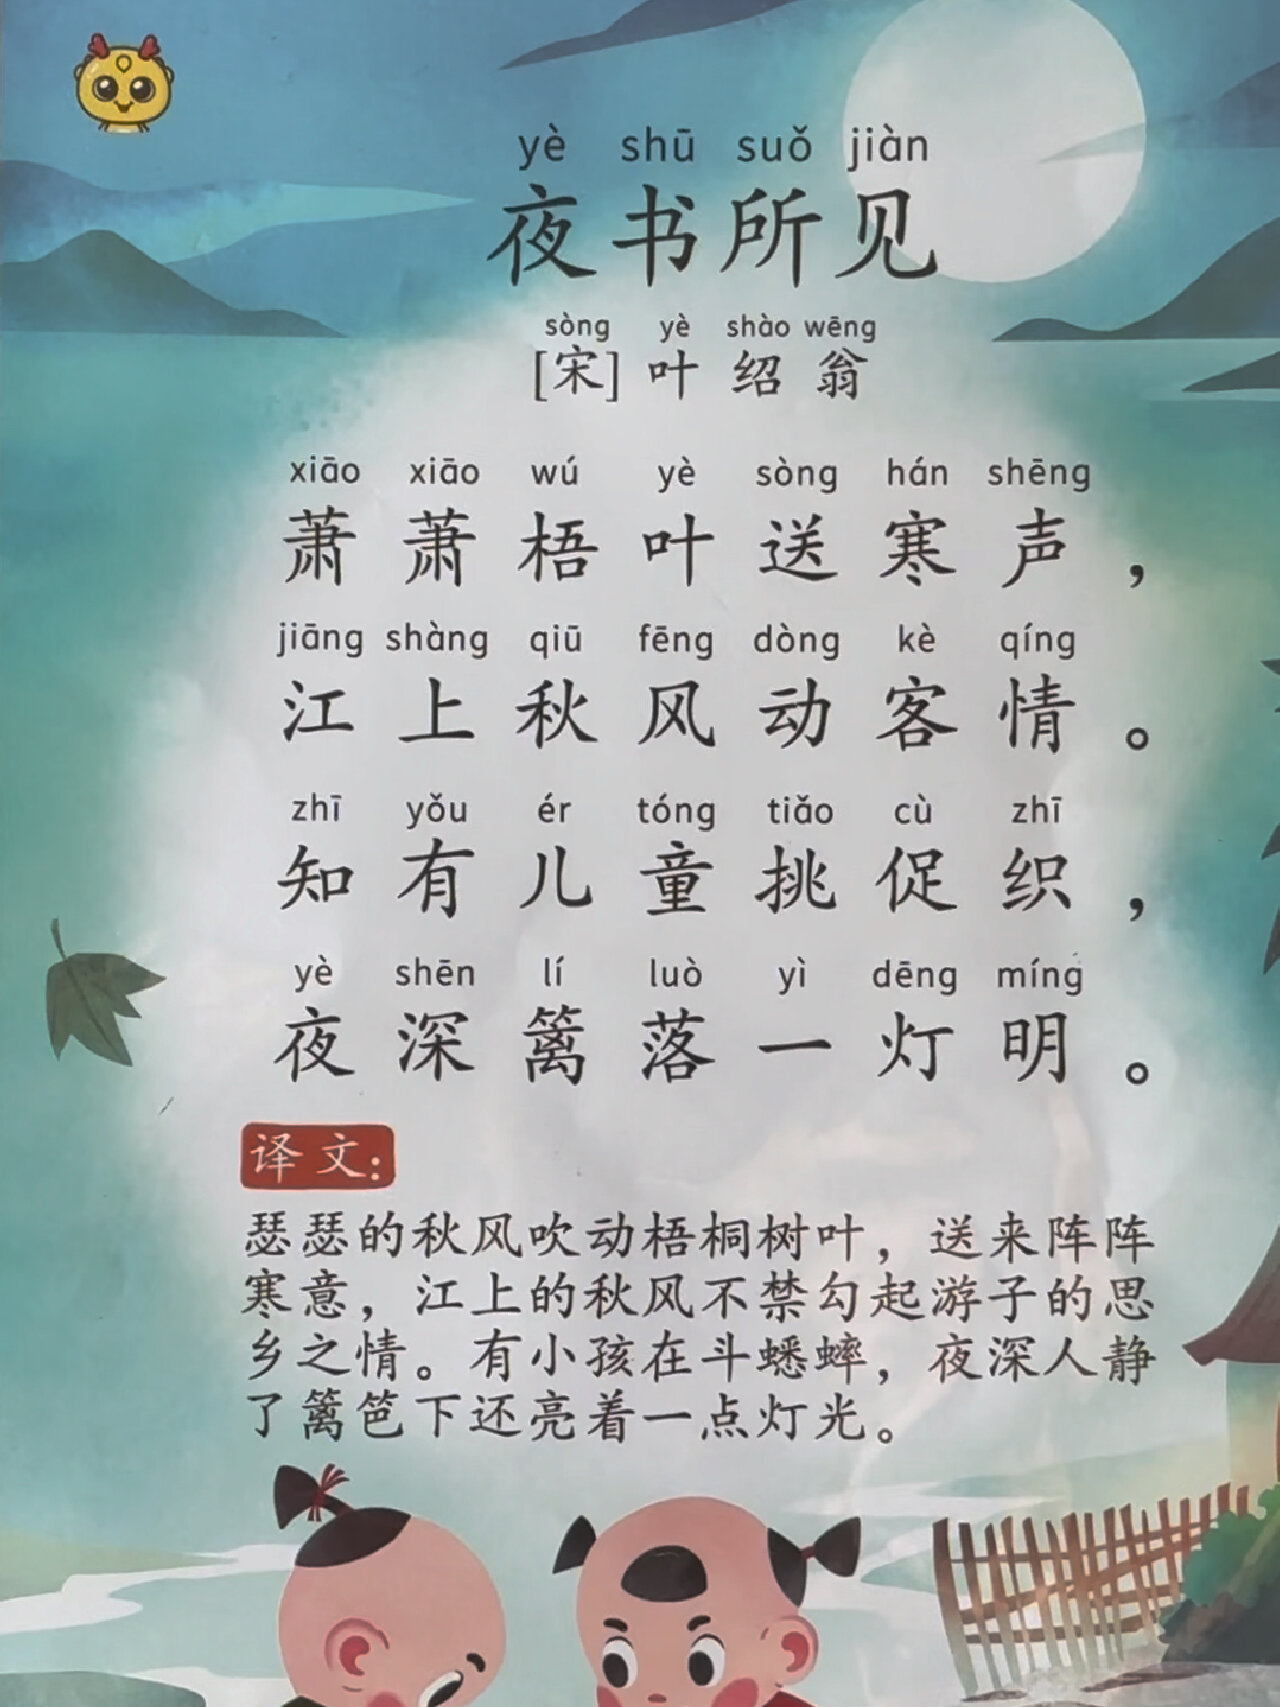 yè shū suǒ jiàn
夜书所见
sòng yè shào wēng
[宋] 叶绍翁
xiāo xiāo wú yè sòng hán shēng
萧萧梧叶送寒声，
jiāng shàng qiū fēng dòng kè qíng
江上秋风动客情。
zhī yǒu ér tóng tiǎo cù zhī
知有儿童挑促织，
yè shēn lí luò yì dēng míng
夜深篱落一灯明。
译文：
瑟瑟的秋风吹动梧桐树叶，送来阵阵
寒意，江上的秋风不禁勾起游子的思
乡之情。有小孩在斗蟋蟀，夜深人静
了篱笆下还亮着一点灯光。